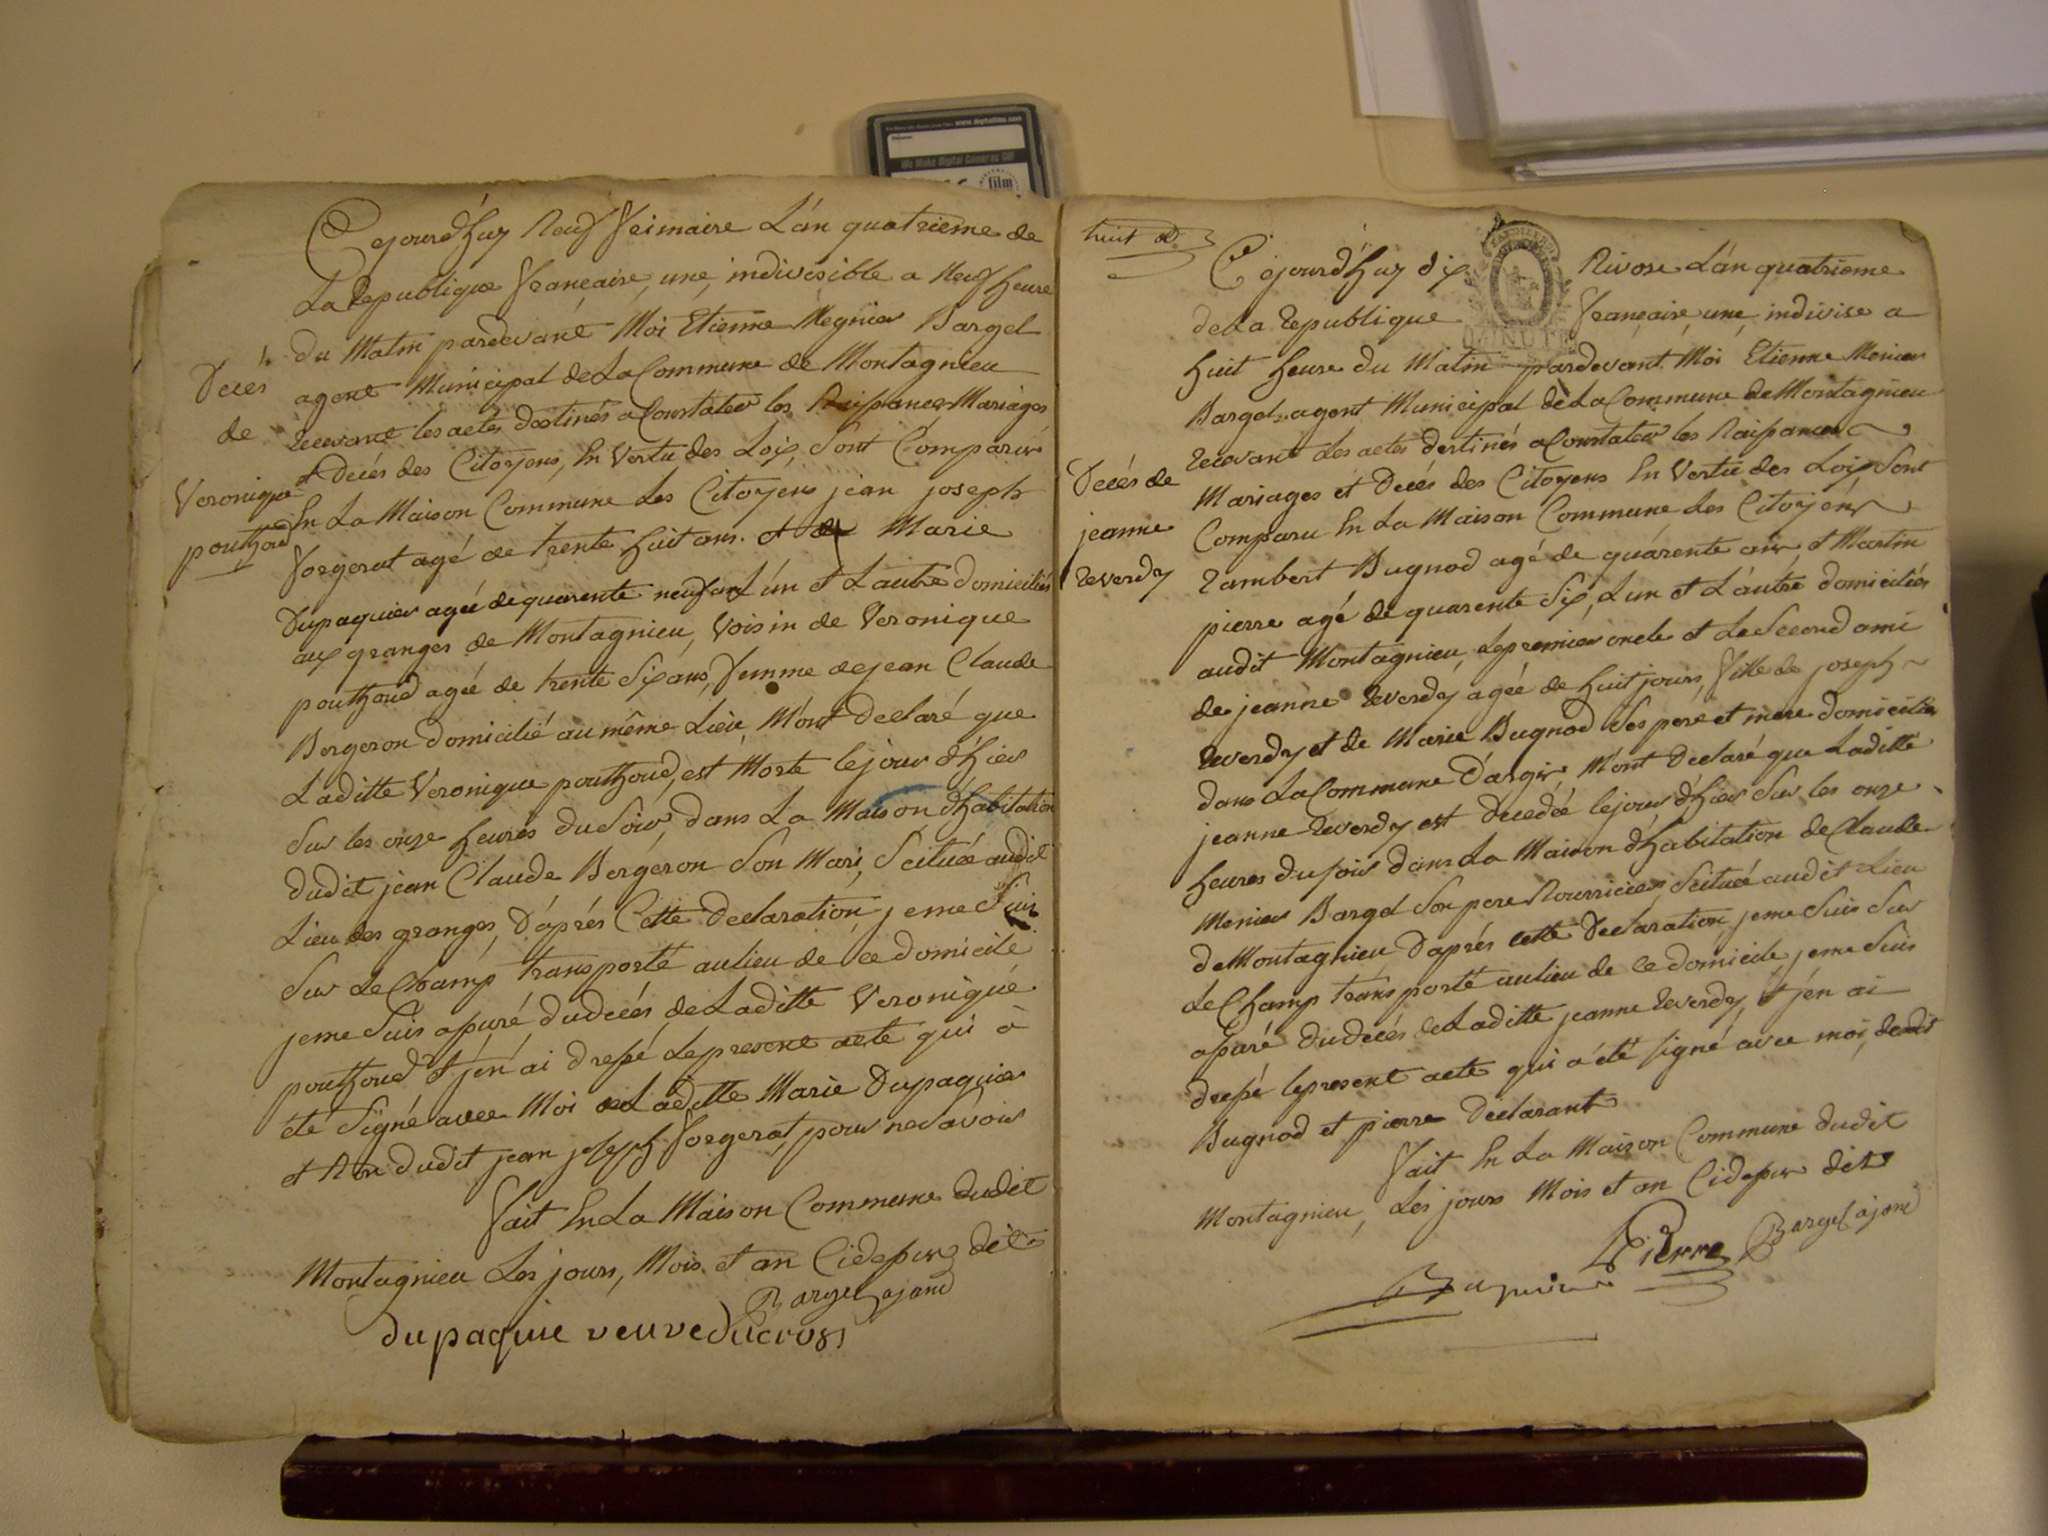 www.deptalfilm.com
We Make Digital Cameras Go!
film
Cejourd'huy Neuf frimaire L'an quatrieme de
La Republique françaire, une, indivisible a Neuf heure
du Matin pardevant Moi Etienne Megnier Bargel
agent Municipal de La Commune de Montagnieu
recevant les actes destinés a Constater les Naissances Mariages
et Decés des Citoyens, En Vertu des Loix, Sont Comparus
En La Maison Commune Les Citoyens jean joseph
forgerat agé de trente huit ans. et de Marie
Dupaquier agée de quarente neuf ans L'un et L'autre domiciliés
aux granges de Montagnieu, Voisin de Veronique
pouthoud agée de trente Six ans, femme de jean Claude
Bergeron domicilié au même Lieu, M'ont Declaré que
Laditte Veronique pouthoud, est Morte le jour d'hier
Sur les onze heures du Soir, dans La Maison d'habitation
dudit jean Claude Bergeron Son Mari, Scituée audit
Lieu des granges, D'aprés Cette Declaration, je me Suis
Sur Le Champ transporté au lieu de ce domicile
je me Suis assuré du decés de Laditte Veronique
pouthoud et j'en ai dressé Le present acte qui à
été Signé avec Moi de Laditte Marie Dupaquier
et Non dudit jean joseph forgerat, pour ne Savoir
fait En La Maison Commune dudit
Montagnieu Les jours, Mois et an Cidessus dit
Bargel ajant
dupaquie veuve ducros
Decés
de
Veronique
pouthoud
huit
Cejourd'huy dix Nivose L'an quatrieme
de La Republique françaire, une, indivise a
huit heure du Matin pardevant Moi Etienne Menier
Bargel agent Municipal de La Commune de Montagnieu
recevant Les actes destinés a Constater les Naissances
Mariages et Decés des Citoyens En Vertu des Loix Sont
Comparu En La Maison Commune Les Citoyens
rambert Bugnod agé de quarente ans et Martin
pierre agé de quarente Six, L'un et L'autre domiciliés
audit Montagnieu, Le premier oncle et Le Second ami
de jeanne reverdy agée de huit jours, fille de joseph
reverdy et de Marie Bugnod Ses pere et mere domiciliés
dans La Commune d'argis, M'ont Declaré que Laditte
jeanne reverdy est décédée le jour d'hier Sur les onze
heures du soir dans La Maison d'habitation de Claude
Menier Bargel Son pere Nourricier, Scituée audit Lieu
de Montagnieu D'aprés cette Declaration, je me Suis Sur
Le Champ transporté au lieu de ce domicile je me Suis
assuré du decés de Laditte jeanne reverdy, et j'en ai
dressé le present acte qui a été signé avec moi, desdit
Bugnod et pierre Declarant
fait En La Maison Commune dudit
Montagnieu, Les jours Mois et an Cidessus dit
Pierre Bargel ajant
Decés de
jeanne
reverdy